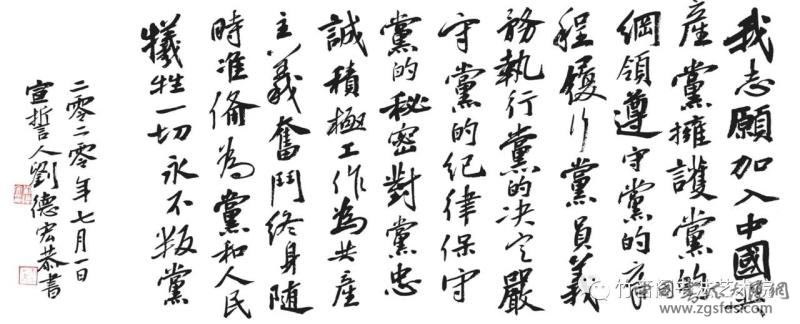 我志願加入中國共
產黨擁護黨的
綱領遵守黨的章
程履行黨員義
務執行黨的决定嚴
守黨的紀律保守
黨的秘密對黨忠
誠積極工作為共產
主義奮鬥終身隨
時准俻為黨和人民
犧牲一切永不叛黨
二零二零年七月一日
宣誓人劉德宏恭書
www.zgsfds.com